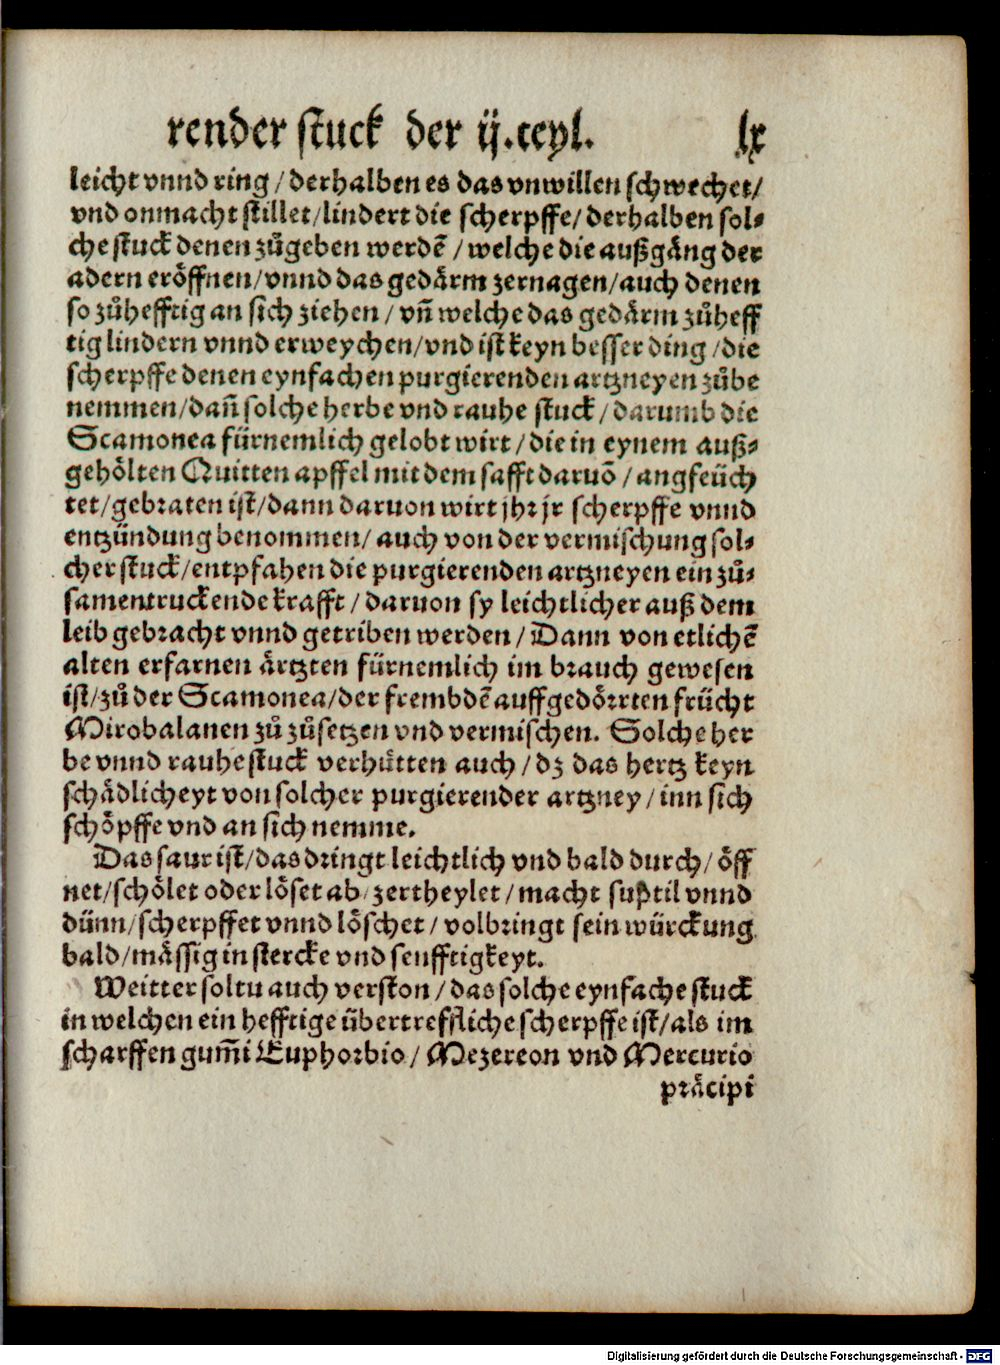 render stuck der ij.teyl. lx
leicht vnnd ring / derhalben es das vnwillen schwechet/
vnd onmacht stillet/lindert die scherpffe/ derhalben sol⸗
che stuck denen zůgeben werdẽ / welche die außgäng der
adern eröffnen/vnnd das gedärm zernagen/auch denen
so zůhefftig an sich ziehen / vñ welche das gedärm zůheff
tig lindern vnnd erweychen/vnd ist keyn besser ding /die
scherpffe denen eynfachen purgierenden artzneyen zůbe
nemmen/dañ solche herbe vnd rauhe stuck / darumb die
Scamonea fürnemlich gelobt wirt / die in eynem auß⸗
gehölten Quitten apffel mit dem safft daruõ / angfeüch
tet/gebraten ist/dann daruon wirt jhr jr scherpffe vnnd
entzündung benommen/ auch von der vermischung sol⸗
cher stuck/entpfahen die purgierenden artzneyen ein zů⸗
samentruckende krafft / daruon sy leichtlicher auß dem
leib gebracht vnnd getriben werden / Dann von etlichẽ
alten erfarnen ärtzten fürnemlich im brauch gewesen
ist/zů der Scamonea/der frembdẽ auffgedörrten frücht
Mirobalanen zů zůsetzen vnd vermischen. Solche her
be vnnd rauhe stuck verhütten auch / dz das hertz keyn
schädlicheyt von solcher purgierender artzney / inn sich
schöpffe vnd an sich nemme.
Das saur ist/das dringt leichtlich vnd bald durch/ öff
net/schölet oder löset ab/ zertheylet / macht subtil vnnd
dünn/scherpffet vnnd löschet / volbringt sein würckung
bald/mässig in stercke vnd senfftigkeyt.
Weitter soltu auch verston / das solche eynfache stuck
in welchen ein hefftige übertreffliche scherpffe ist/als im
scharffen gum̃i Euphorbio / Mezereon vnd Mercurio
präcipi
Digitalisierung gefördert durch die Deutsche Forschungsgemeinschaft - DFG